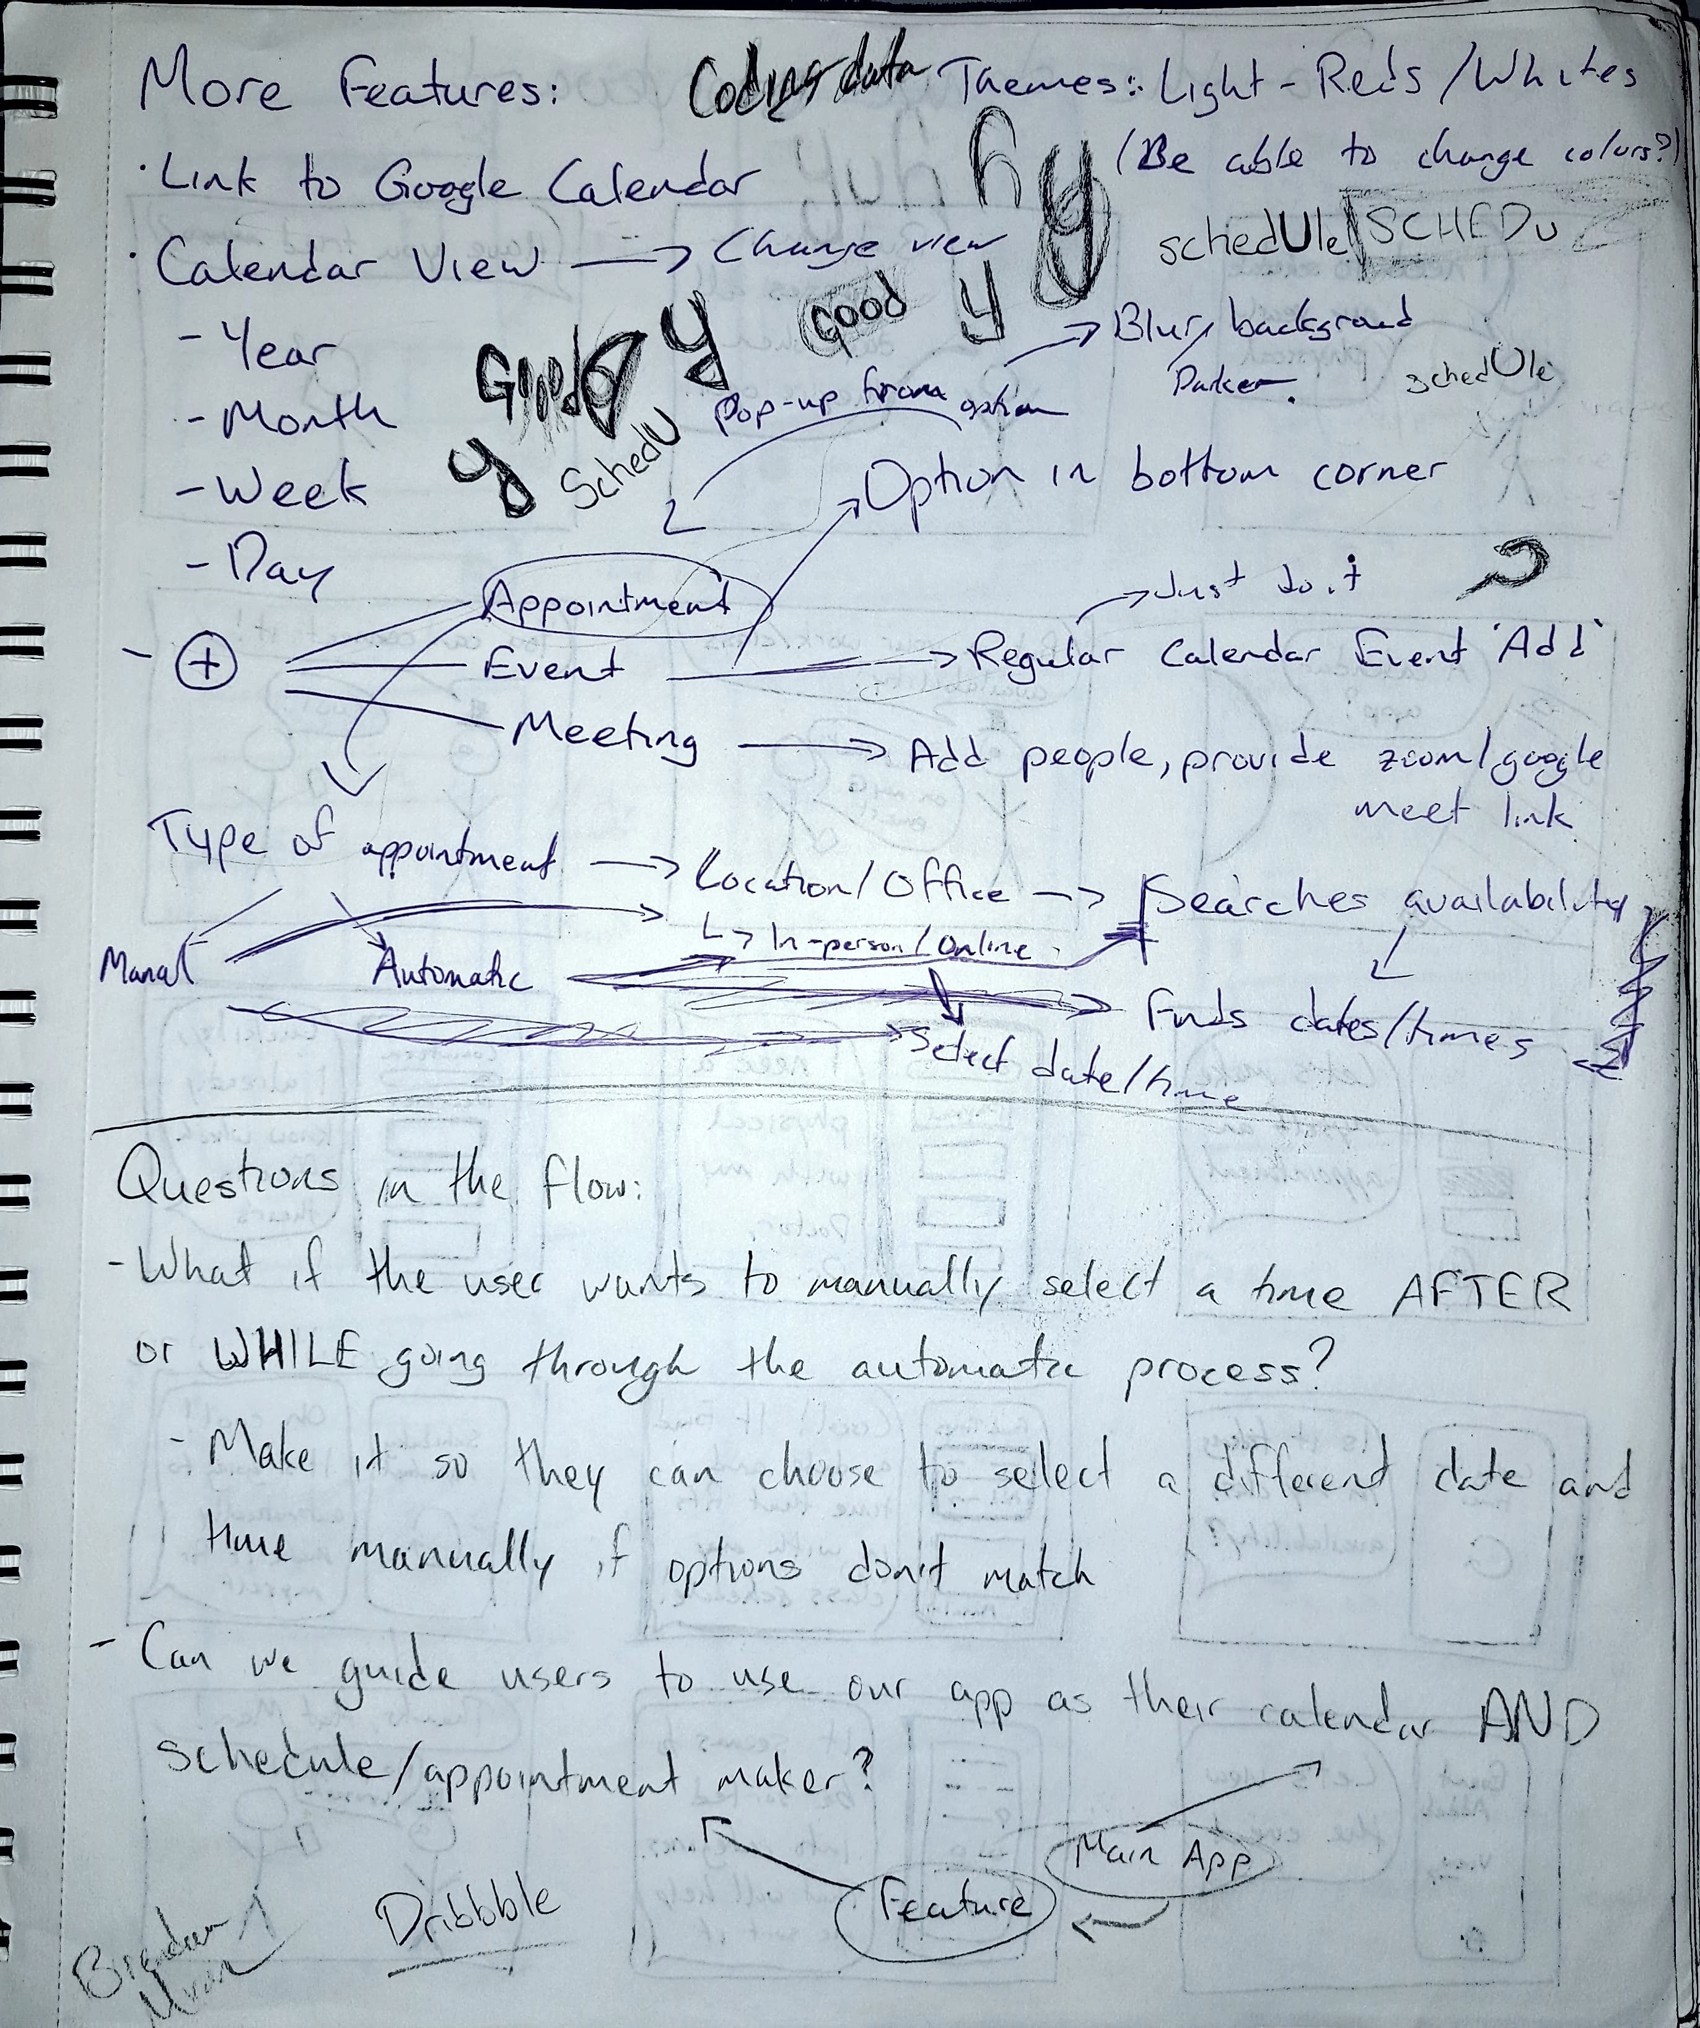 More Features:
Coding data
Themes: Light - Reds/Whites
(Be able to change colors?)
· Link to Google Calendar
hy
· Calendar View → Change view
schedUle SCHEDU
- Year
Good
y
Good
y
Blur background
Darker.
schedUle
- Month
Pop-up from option
y
SchedU
- Week
Option in bottom corner
- Day
Just do it
Appointment
- + Event → Regular Calendar Event 'Add'
Meeting → Add people, provide zoom/google
meet link
Type of appointment → Location/Office → Searches availability
↳ In-person/Online
Manal
Automatic
Finds dates/times
Select date/time
Questions in the flow:
- What if the user wants to manually select a time AFTER
or WHILE going through the automatic process?
- Make it so they can choose to select a different date and
time manually if options don't match
- Can we guide users to use our app as their calendar AND
schedule/appointment maker?
Main App
Feature
Dribbble